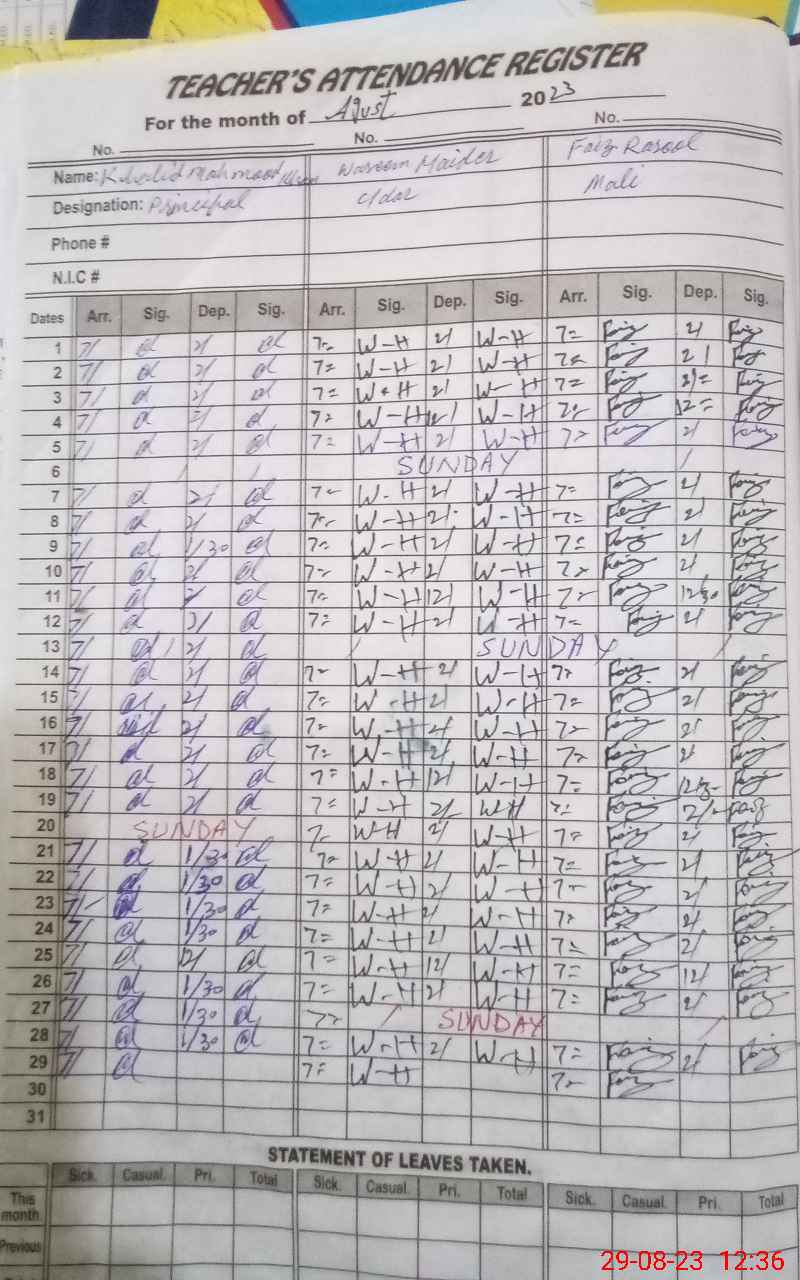 TEACHER'S ATTENDANCE REGISTER
For the month of Agust 2023
No. No. No.
Name: Khalid Mahmood Khan Waseem Haider Faiz Rasool
Designation: Principal Mali
Phone #
N.I.C #
Dates Arr. Sig. Dep. Sig. Arr. Sig. Dep. Sig. Arr. Sig. Dep. Sig.
1 7/ 2/ 7= W-H 2/ W-H 7= Faiz 2/ Faiz
2 7/ 2/ 7= W-H 2/ W-H 7= Faiz 2/ Faiz
3 7/ 2/ 7= W-H 2/ W-H 7= Faiz 2/= Faiz
4 7/ 2/ 7= W-H 12/ W-H 7= Faiz 12= Faiz
5 7/ 2/ 7= W-H 2/ W-H 7= Faiz 2/ Faiz
6 SUNDAY
7 7/ 2/ 7= W-H 2/ W-H 7= Faiz 2/ Faiz
8 7/ 2/ 7= W-H 2/ W-H 7= Faiz 2/ Faiz
9 7/ 1/30 7= W-H 2/ W-H 7= Faiz 2/ Faiz
10 7/ 2/ 7= W-H 2/ W-H 7= Faiz 2/ Faiz
11 7/ 7= W-H 12/ W-H 7= Faiz 12/30 Faiz
12 7/ 2/ 7= W-H 2/ W-H 7= Faiz 2/ Faiz
13 7/ 2/ SUNDAY
14 7/ 2/ 7= W-H 2/ W-H 7= Faiz 2/ Faiz
15 7/ 2/ 7= W-H 2/ W-H 7= Faiz 2/ Faiz
16 7/ 2/ 7= W-H 2/ W-H 7= Faiz 2/ Faiz
17 7/ 2/ 7= W-H 2/ W-H 7= Faiz 2/ Faiz
18 7/ 2/ 7= W-H 12/ W-H 7= Faiz Faiz
19 7/ 2/ 7= W-H 2/ W-H 7= Faiz 2/ Faiz
20 SUNDAY 7= W-H 2/ W-H 7= Faiz 2/ Faiz
21 7/ 1/30 7= W-H 2/ W-H 7= Faiz 2/ Faiz
22 7/ 1/30 7= W-H 2/ W-H 7= Faiz 2/ Faiz
23 7/ 1/30 7= W-H 2/ W-H 7= Faiz 2/ Faiz
24 7/ 1/30 7= W-H 2/ W-H 7= Faiz 2/ Faiz
25 7/ 7= W-H 12/ W-H 7= Faiz 12/ Faiz
26 7/ 1/30 7= W-H 2/ W-H 7= Faiz 2/ Faiz
27 7/ 1/30 7= SUNDAY
28 7/ 1/30 7= W-H 2/ W-H 7= Faiz 2/ Faiz
29 7/ 7= W-H 7= Faiz
30
31
STATEMENT OF LEAVES TAKEN.
Sick. Casual. Pri. Total Sick. Casual. Pri. Total Sick. Casual. Pri. Total
This month.
Previous
29-08-23 12:36